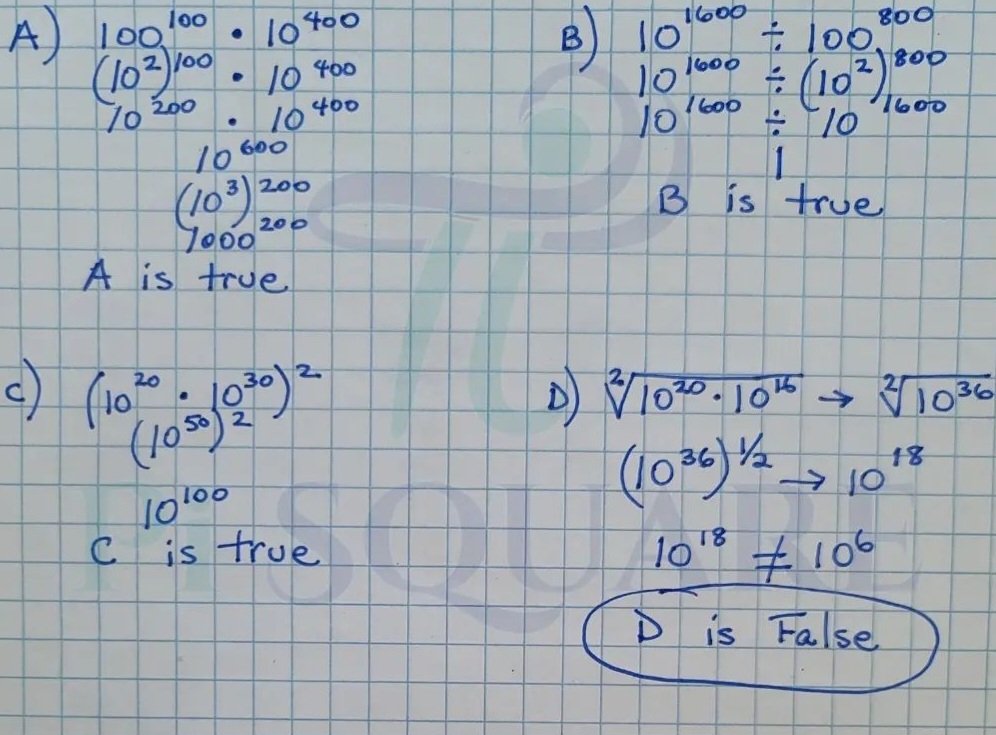 A) 100¹⁰⁰ · 10⁴⁰⁰
(10²)¹⁰⁰ · 10⁴⁰⁰
10²⁰⁰ · 10⁴⁰⁰
10⁶⁰⁰
(10³)²⁰⁰
1000²⁰⁰
A is true
B) 10¹⁶⁰⁰ ÷ 100⁸⁰⁰
10¹⁶⁰⁰ ÷ (10²)⁸⁰⁰
10¹⁶⁰⁰ ÷ 10¹⁶⁰⁰
1
B is true
C) (10²⁰ · 10³⁰)²
(10⁵⁰)²
10¹⁰⁰
C is true
D) ²√10²⁰ · 10¹⁶ → ²√10³⁶
(10³⁶)^½ → 10¹⁸
10¹⁸ ≠ 10⁶
D is False
Pi SQUARE